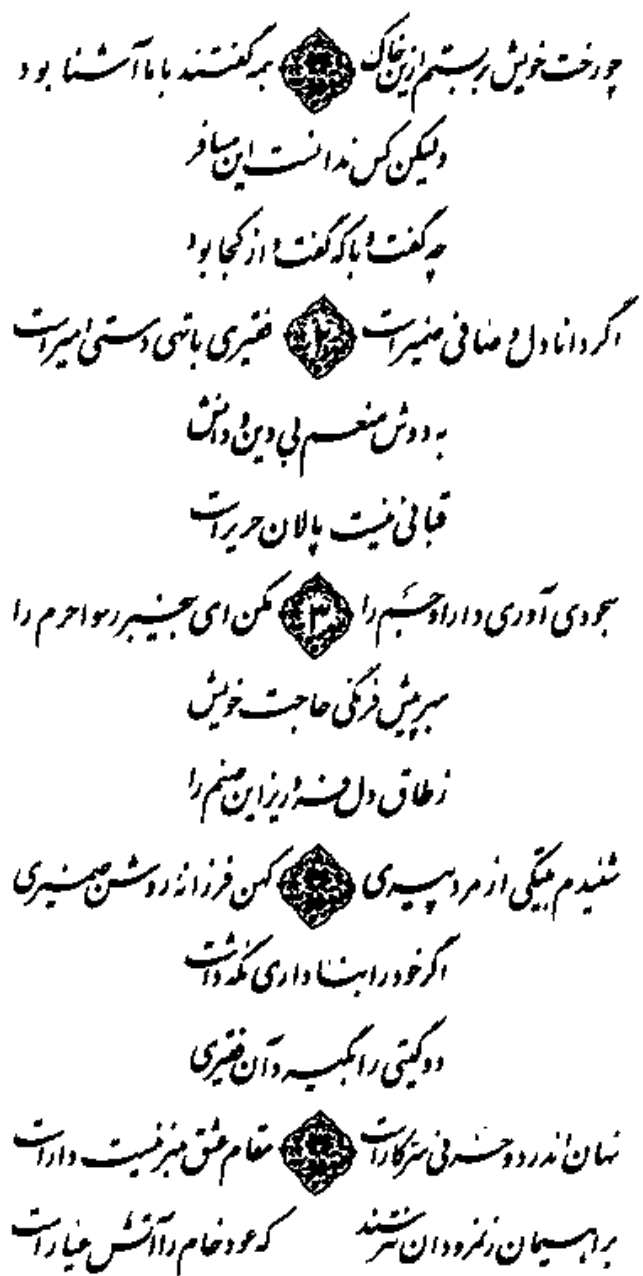 چو رخت خویش بر بستم ازین خاک همه گفتند با ما آشنا بود
ولیکن کس ندانست این مسافر
چه گفت و با که گفت و از کجا بود
اگر دانا دل و صافی ضمیر است ۲ فقیری با تهی دستی امیر است
به دوش منعم بی دین و دانش
قبائی نیست پالان حریر است
سجودی آوری دارا و جم را ۳ مکن ای بیخبر رسوا حرم را
مبر پیش فرنگی حاجت خویش
ز طاق دل فرو ریز این صنم را
شنیدم بیتکی از مرد پیری کهن فرزانهٔ روشن ضمیری
اگر خود را بناداری نگه داشت
دو گیتی را بگیرد آن فقیری
نهان اندر دو حرفی سر کار است مقام عشق منبر نیست دار است
براهیمان ز نمرودان نترسند که عود خام را آتش عیار است